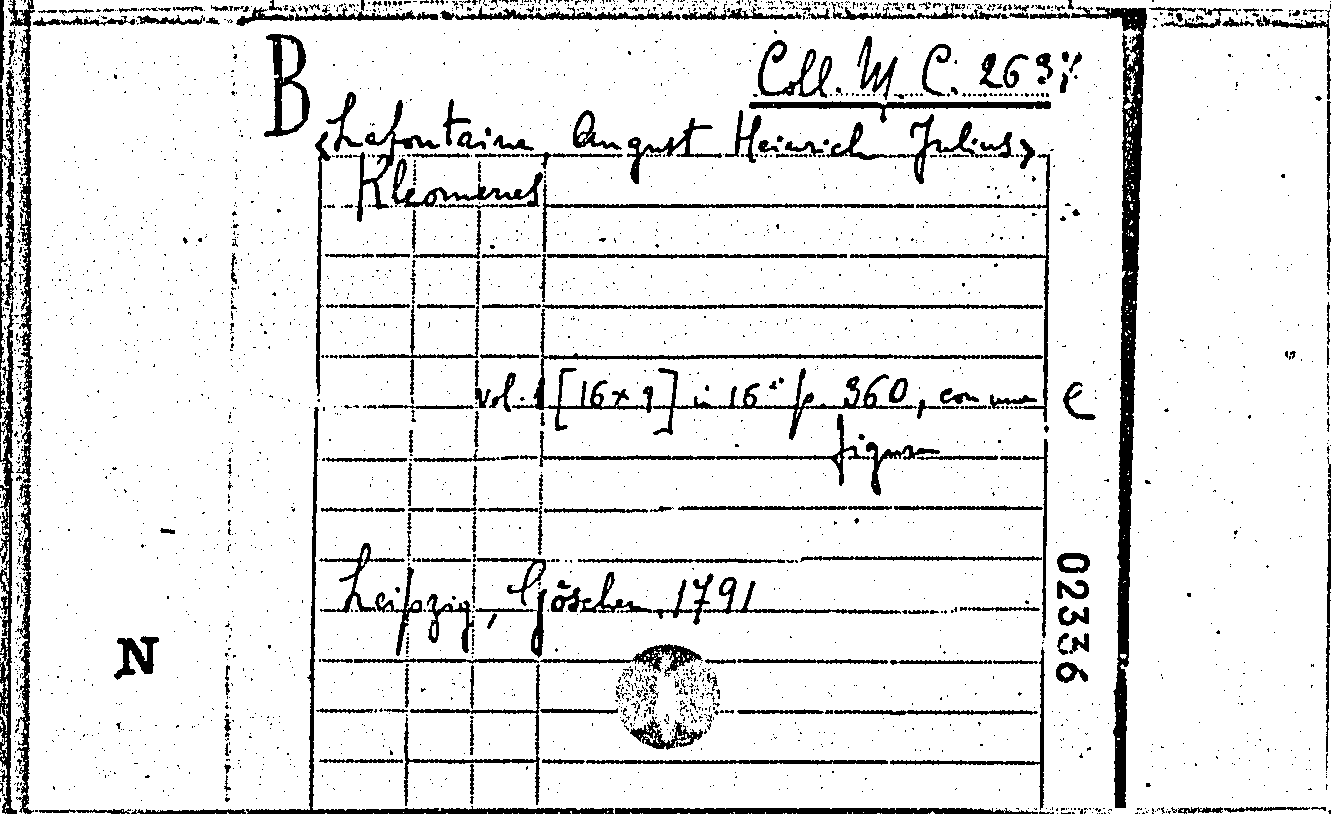 B
Coll. M. C. 263
<Lafontaine, August Heinrich Julius>
Kleomenes
vol. 1 [16x9] in 16° p. 360, con una
figura
C
Leipzig, Göschen, 1791
02336
N